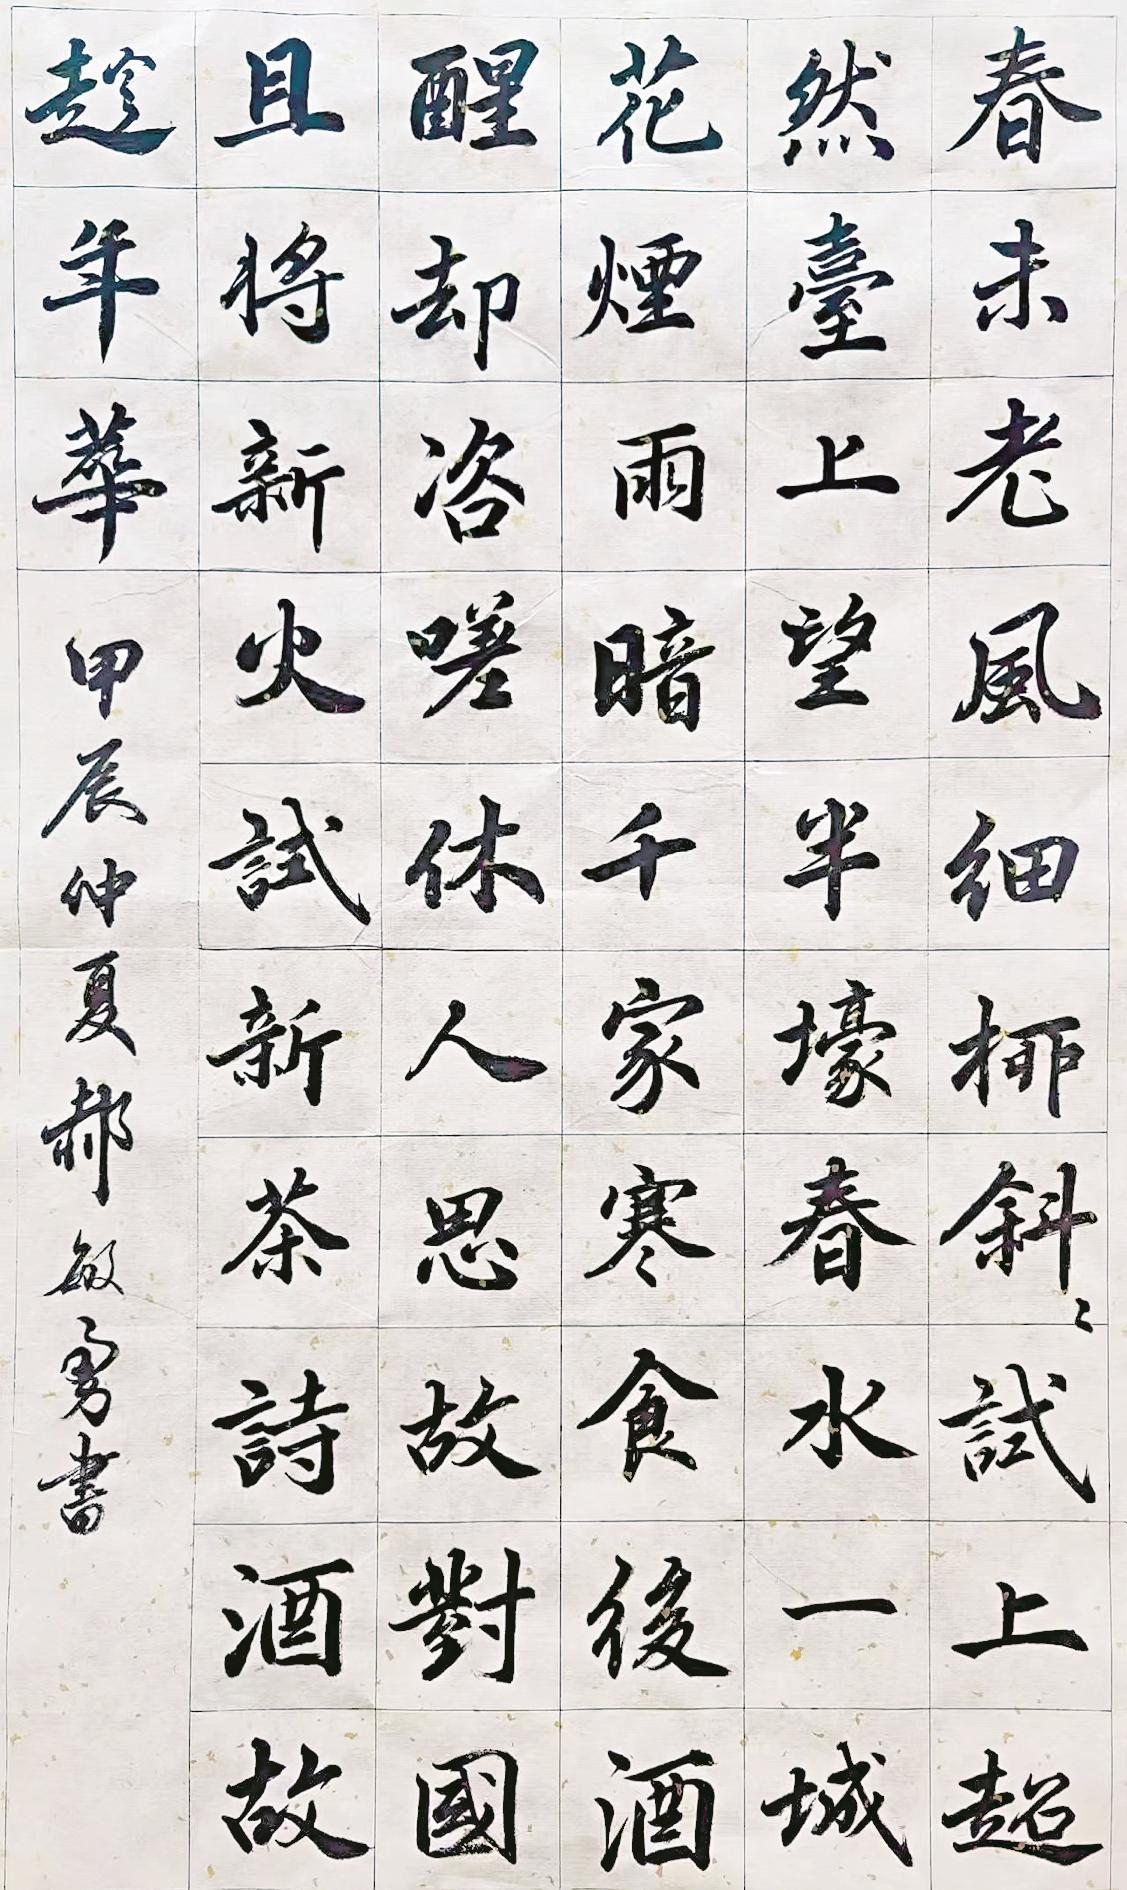 春未老風細柳斜〻試上超
然臺上望半壕春水一城
花煙雨暗千家寒食後酒
醒却咨嗟休人思故對國
且将新火試新茶詩酒故
趁年華
甲辰仲夏郝敏勇書